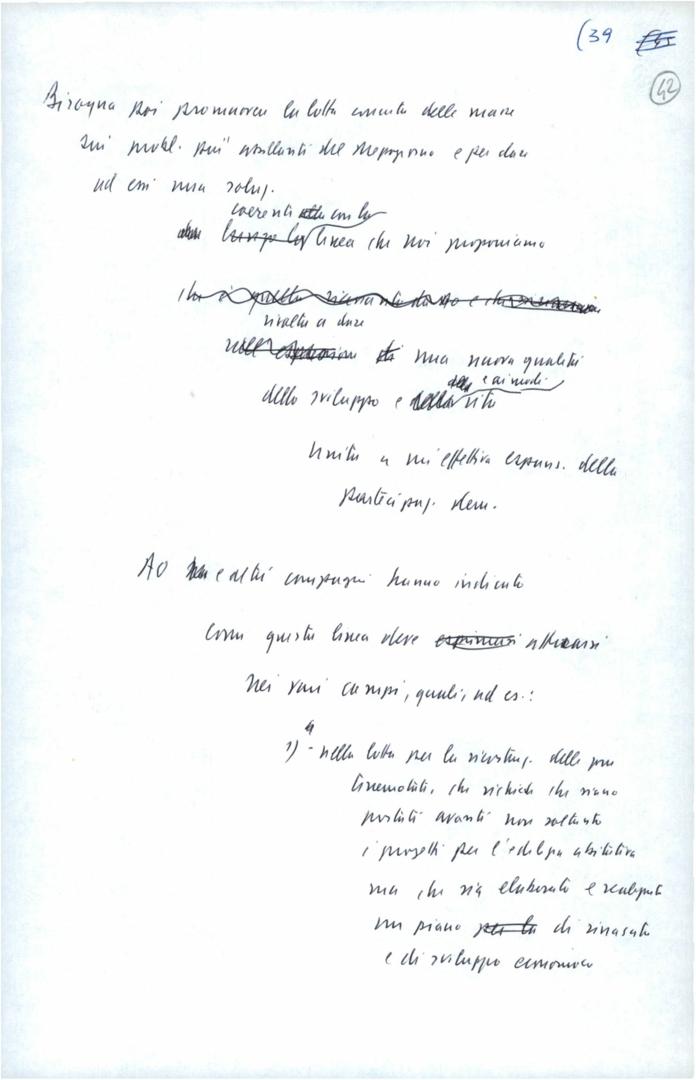 (39
42
Bisogna poi promuovere la lotta concreta delle masse
sui probl. più assillanti del Mezzogiorno e per dare
ad essi una soluz.
coerenti con la
linea che noi proponiamo
rivolta a dare
una nuova qualità
e ai modi
dello sviluppo e vita
Unita a un'effettiva espans. della
partecipaz. dem.
AO e altri compagni hanno indicato
come questa linea deve attuarsi
nei vari campi, quali, ad es.:
1) - nella lotta per la ricostruz. delle zone
terremotate, che richiede che siano
portati avanti non soltanto
i progetti per l'edilizia abitativa
ma che sia elaborato e realizzato
un piano per la di rinascita
e di sviluppo economico